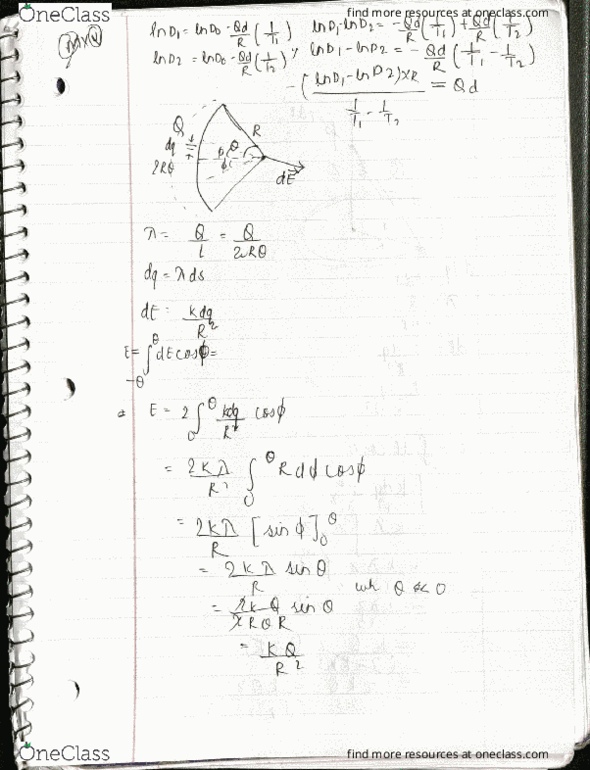 OneClass
find more resources at oneclass.com
ln D₁ = ln D₀ - Qd/R (1/T₁)
ln D₁ - ln D₂ = - Qd/R (1/T₁) + Qd/R (1/T₂)
ln D₂ = ln D₀ - Qd/R (1/T₂)
ln D₁ - ln D₂ = - Qd/R (1/T₁ - 1/T₂)
- (ln D₁ - ln D₂) × R / (1/T₁ - 1/T₂) = Qd
Q
R
dq
θ
2Rθ
dE
λ = Q/L = Q/2Rθ
dq = λ ds
dE = k dq / R²
E = ∫_{-θ}^{θ} dE cos ϕ =
E = 2 ∫₀^θ kdq/R² cos ϕ
= 2kλ/R² ∫₀^θ R dϕ cos ϕ
= 2kλ/R [sin ϕ]₀^θ
= 2kλ/R sin θ
θ ≪ 0
= 2k Q sin θ / 2RθR
= kQ/R²
OneClass
find more resources at oneclass.com